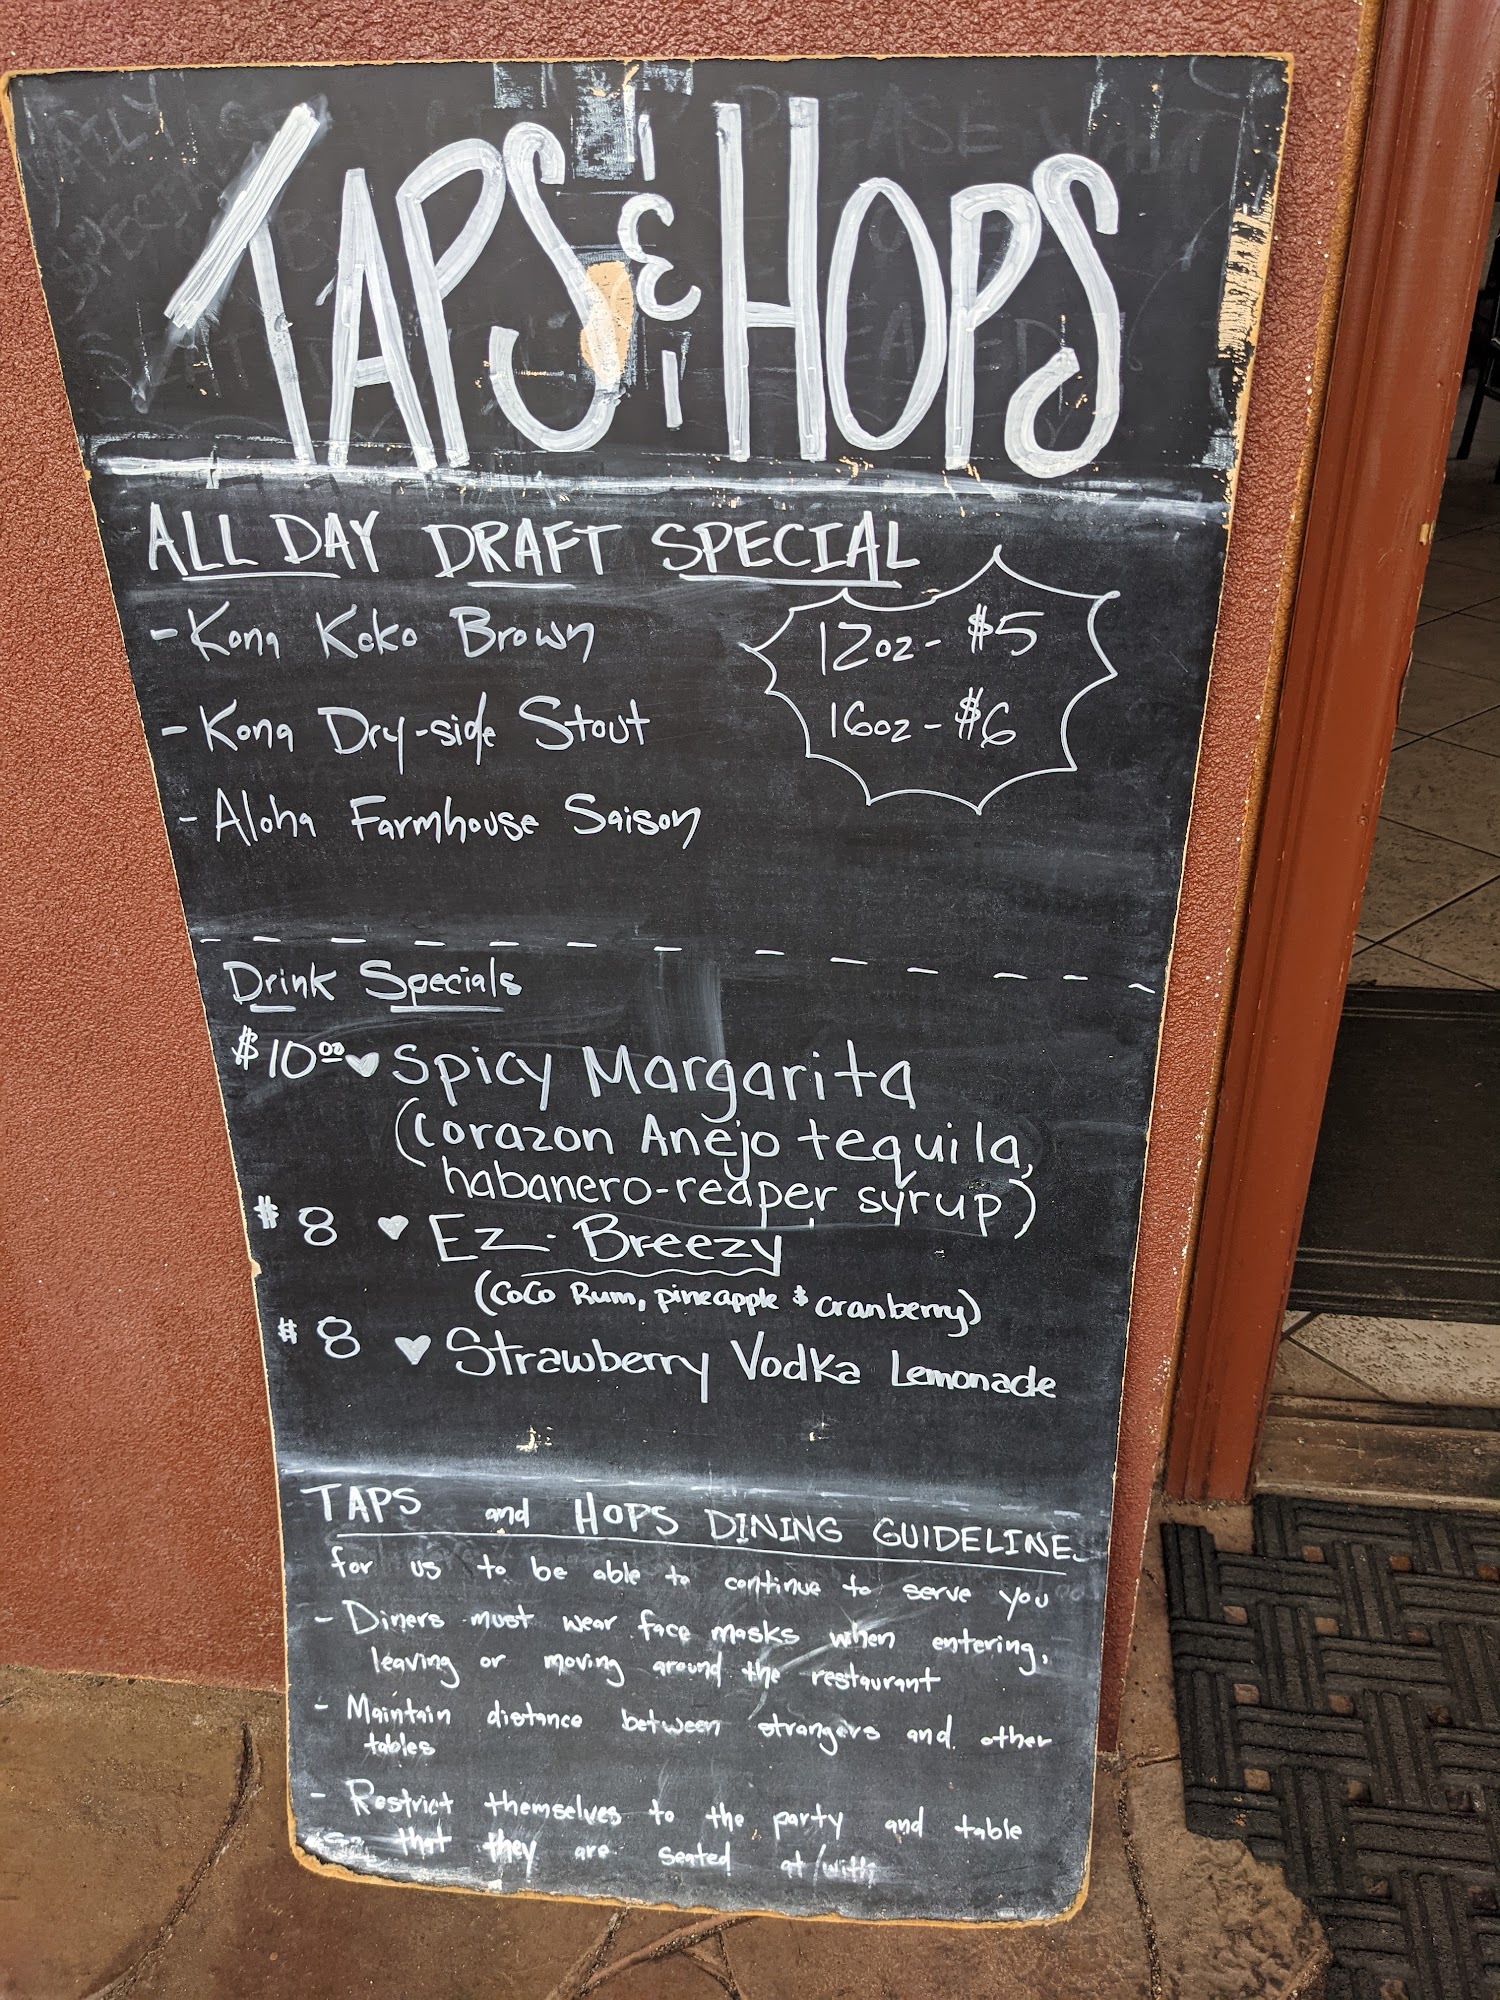 TAPS & HOPS
ALL DAY DRAFT SPECIAL
- Kona Koko Brown
12oz - $5
- Kona Dry-side Stout
16oz - $6
- Aloha Farmhouse Saison
Drink Specials
$10.00 ♥ Spicy Margarita
(Corazon Anejo tequila,
habanero-reaper syrup)
$8 ♥ Ez. Breezy
(CoCo Rum, pineapple & cranberry)
$8 ♥ Strawberry Vodka Lemonade
TAPS and HOPS DINING GUIDELINE
for us to be able to continue to serve you
- Diners must wear face masks when entering,
leaving or moving around the restaurant
- Maintain distance between strangers and other
tables
- Restrict themselves to the party and table
that they are seated at/with